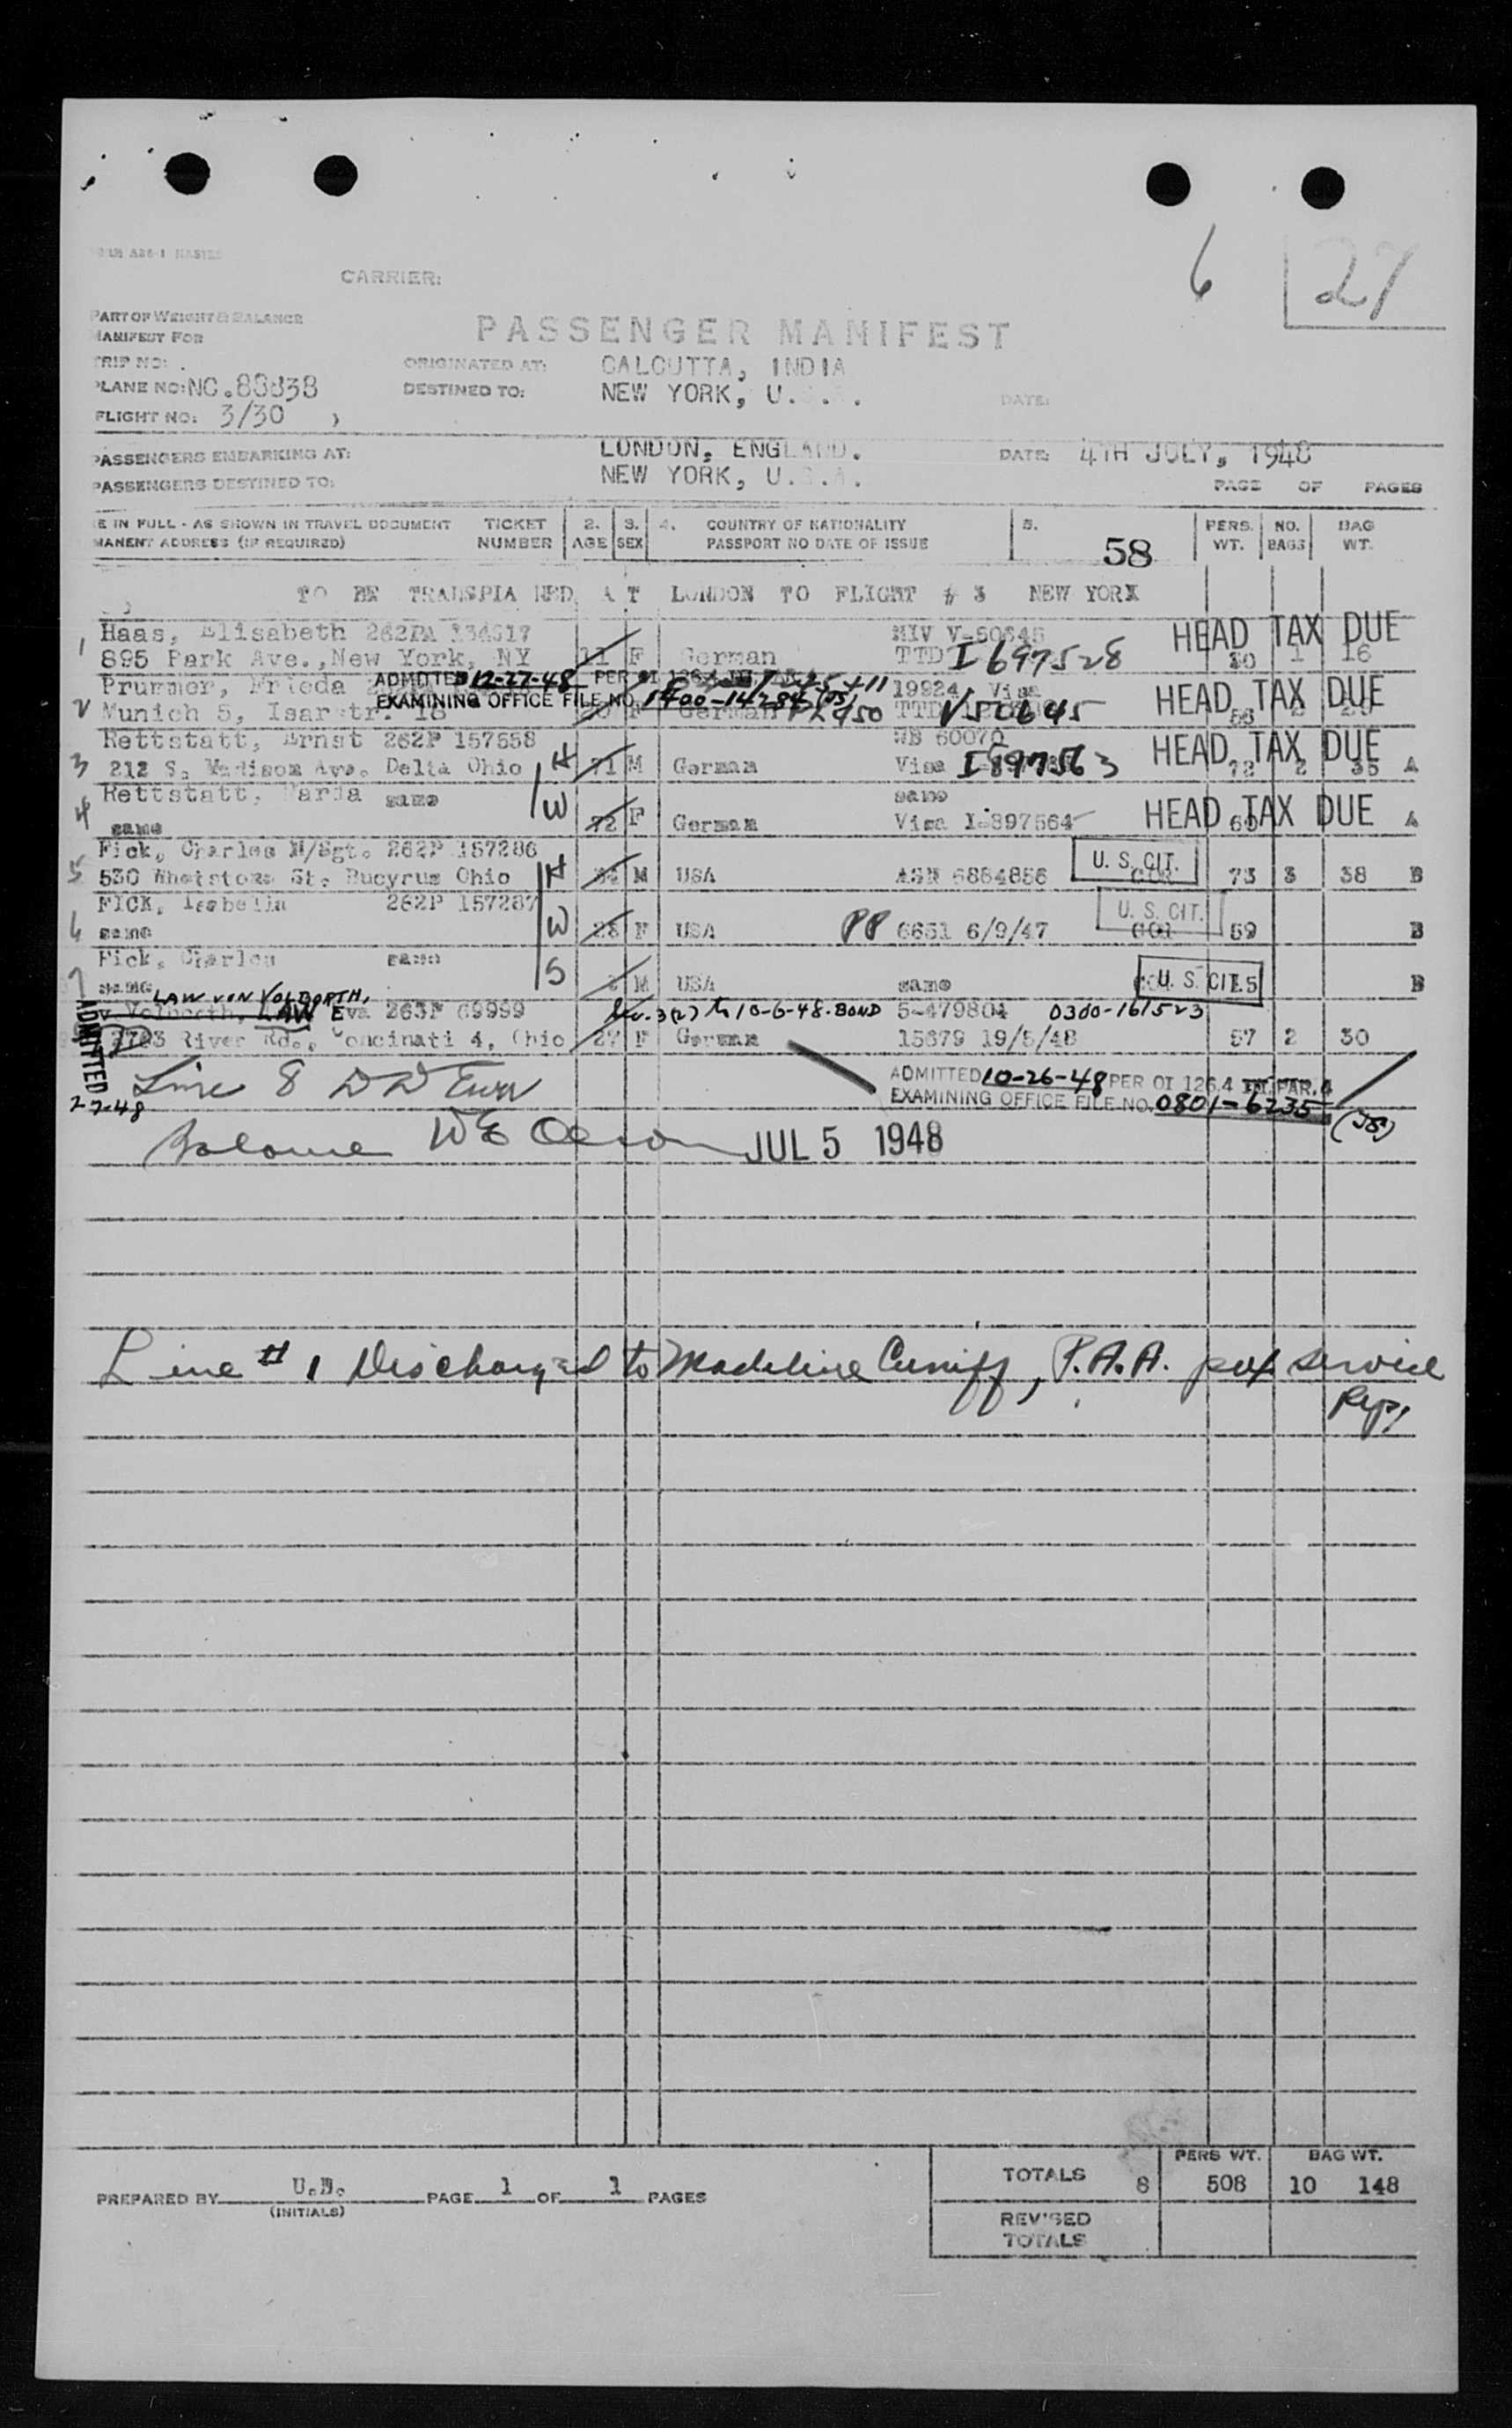 6 27
CARRIER:
PART OF WEIGHT & BALANCE
MANIFEST FOR
PASSENGER MANIFEST
TRIP NO: ORIGINATED AT: CALCUTTA, INDIA
PLANE NO: NC.88838 DESTINED TO: NEW YORK, U. . . DATE:
FLIGHT NO: 3/30
PASSENGERS EMBARKING AT: LONDON, ENGLAND. DATE: 4TH JULY, 1948
PASSENGERS DESTINED TO: NEW YORK, U.S.A.
PAGE OF PAGES
E IN FULL - AS SHOWN IN TRAVEL DOCUMENT TICKET 2. 3. 4. COUNTRY OF NATIONALITY 5. PERS. NO. BAG
MANENT ADDRESS (IF REQUIRED) NUMBER AGE SEX PASSPORT NO DATE OF ISSUE 58 WT. BAGS WT.
TO BE TRANSPLANED AT LONDON TO FLIGHT # 3 NEW YORK
1 Haas, Elisabeth 262PA 134517 NIV V-50645 HEAD TAX DUE
895 Park Ave., New York, NY 11 F German TTD I 697528 30 1 16
Prummer, Frieda ADMITTED 12-27-48 PER OI 126.4 19924 Visa HEAD TAX DUE
2 Munich 5, Isarstr. 16 EXAMINING OFFICE FILE NO. F German TTD V50645
Rettstatt, Ernst 262P 157558 60070 HEAD TAX DUE
3 212 S. Madison Ave. Delta Ohio H 71 M German Visa I 897563 72 2 35 A
4 Rettstatt, Maria same W same HEAD TAX DUE
same 72 F German Visa I-897564 A
Fick, Charles M/Sgt. 262P 157286 U. S. CIT.
5 530 Whetstone St. Bucyrus Ohio H M USA ASN 6884856 73 3 38 B
FICK, Isabella 262P 157287 U. S. CIT.
6 same W 28 F USA PP 6651 6/9/47 59 B
Fick, Charles same
7 same S M USA same U. S. CIT. 15 B
LAW VON VOLBORTH,
v Volborth, LAW Eva 263P 69999 10-6-48-BOND 5-479804 0300-161523
2793 River Rd., Concinati 4, Ohio 27 F German 15679 19/5/48 57 2 30
ADMITTED
2-7-48
Line 8
ADMITTED 10-26-48 PER OI 126.4 PAR. 4
EXAMINING OFFICE FILE NO. 0801-6235 (JS)
JUL 5 1948
Line # 1 Discharged to Madeline Cuniff, P.A.A. psx service
Rep.
PERS WT. BAG WT.
TOTALS 8 508 10 148
PREPARED BY U.D. PAGE 1 OF 1 PAGES
(INITIALS)
REVISED
TOTALS